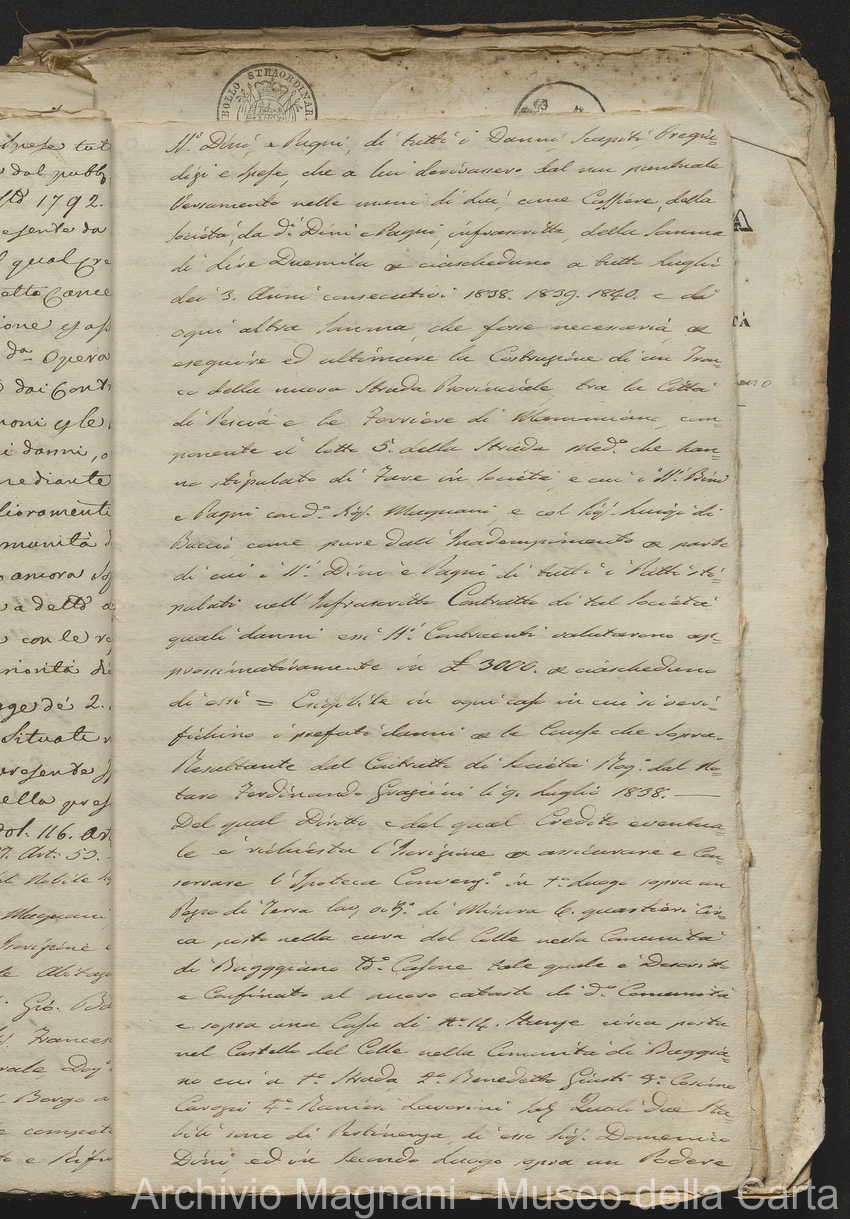 BOLLO STRAORDINAR
nesse tut
dal pubb
1792.
esente da
l qual cre
etto Conce
ione
da Opera
dai Cont
noni
i danni, o
mediante
lioramenti
munità d
ancora
a detto a
con le
riorità di
gge dé 2.
Situate
presente
ella pres
Vol. 116. Ar
Art. 53.
Magnani,
Iscrizione
Gio. Ba
Frances
Borgo a
e compet
to e Rifu
Sri. Dini, e Pagni, di tutti i Danni Scapiti Pregiu=
dizi e spese, che a lui derivassero dal non puntuale
Versamento nelle mani di lui, come Cassiere, della
Società, da di. Dini e Pagni, infrascritta, della Somma
di Lire Duemila p ciascheduno a tutto Luglio
dei 3. Anni consecutivi 1838. 1839. 1840. e di
ogni altra Somma, che fosse necessaria, p
eseguire ed ultimare la Costruzione di un Tron=
co della nuova Strada Provinciale, tra la Città
di Pescia e le Ferriere di Mammiano, com=
ponente il lotto 5. della Strada Meda. che han=
no stipulato di Fare in Società, e cui i Sri. Dini
e Pagni con do. Sig. Magnani, e col Sig. Luigi di
Baccio come pure dall' Inadempimento p parte
di cui i Sri. Dini e Pagni di tutti i Patti sti=
pulati nell' Infrascritto Contratto di tal Società
quali danni essi Sri. Contraenti valutarono ap=
prossimativamente in £ 3000. p ciascheduno
di essi = Esigibile in ogni caso in cui si veri=
fichino i prefati danni p le Cause che Sopra.
Resultante dal Contratto di Società Rogo. dal No=
taro Ferdinando Grazzini li 9. Luglio 1838. —
Del qual Diritto e del qual Credito eventua=
le è richiesta l'Iscrizione p assicurare e Con=
servare l'Ipoteca Convenzle. in 1o. luogo sopra un
Pezzo di Terra di Misura 6. quartieri Cir=
ca posto nella cura del Colle nella Comunità
di Buggiano Do. Casone tale quale è Descritto
e Confinato al nuovo catasto di da. Comunità
e sopra una Casa di No. 14. Stanze circa posta
nel Castello del Colle nella Comunità di Buggia=
no cui a 1o. Strada, 2o. Benedetto Giusti 3o. Cosimo
4o. Ranieri Quali due Sta=
bili sono di Pertinenza, di esso Sig. Domenico
Dini, ed in Secondo Luogo sopra un Podere
Archivio Magnani - Museo della Carta